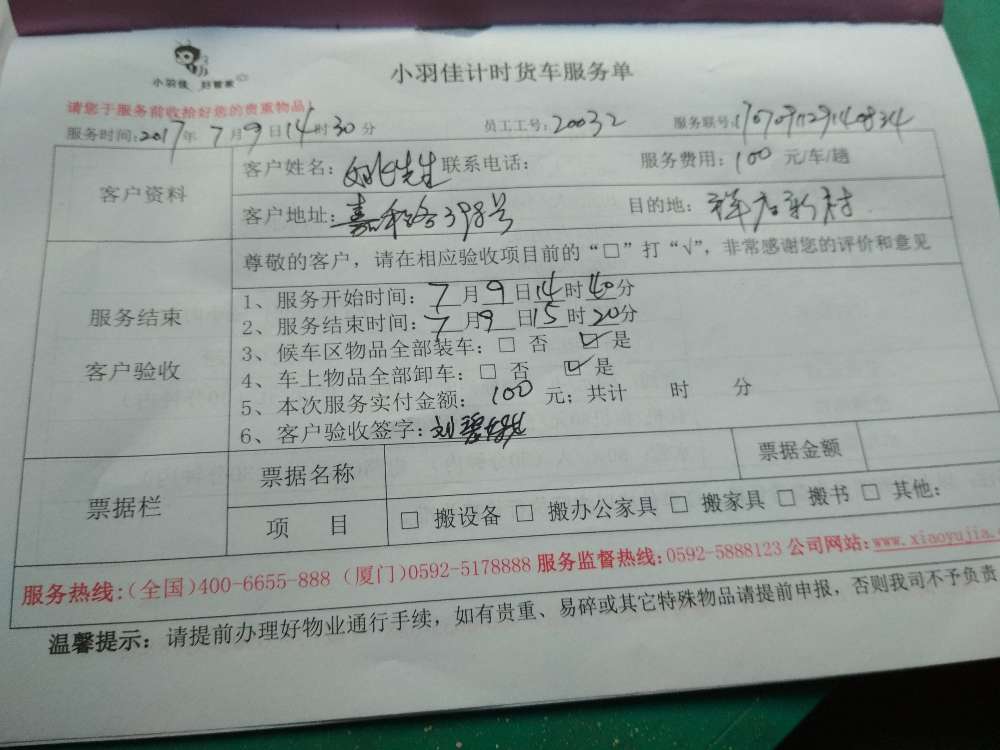 小羽佳 好管家
小羽佳计时货车服务单
请您于服务前收拾好您的贵重物品！
服务时间:2017年 7月9日14时30分 员工工号:20032 服务联号:
客户资料
客户姓名: 先生 联系电话: 服务费用: 100 元/车/趟
客户地址: 嘉禾路398号 目的地: 祥店新村
服务结束
客户验收
尊敬的客户，请在相应验收项目前的“□”打“√”，非常感谢您的评价和意见
1、服务开始时间: 7月9日14时40分
2、服务结束时间: 7月9日15时20分
3、候车区物品全部装车: □ 否 ☑ 是
4、车上物品全部卸车: □ 否 ☑ 是
5、本次服务实付金额: 100 元；共计 时 分
6、客户验收签字: 刘
票据栏
票据名称 票据金额
项 目 □ 搬设备 □ 搬办公家具 □ 搬家具 □ 搬书 □ 其他:
服务热线:(全国)400-6655-888 (厦门)0592-5178888 服务监督热线:0592-5888123 公司网站:www.xiaoyujia.
温馨提示: 请提前办理好物业通行手续，如有贵重、易碎或其它特殊物品请提前申报，否则我司不予负责